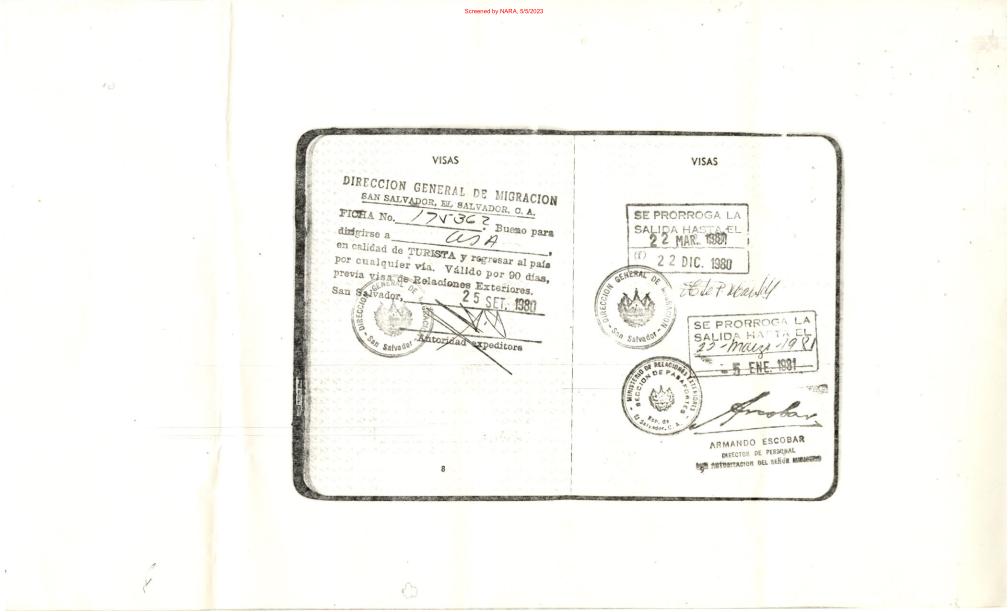 Screened by NARA, 5/5/2023
VISAS
DIRECCION GENERAL DE MIGRACION
SAN SALVADOR, EL SALVADOR, C. A.
FICHA No. Bueno para
dirigirse a USA,
en calidad de TURISTA y regresar al país
por cualquier vía. Válido por 90 días,
previa visa de Relaciones Exteriores.
San Salvador, 25 SET. 1980
Autoridad expeditora
DIRECCION GENERAL DE
San Salvador
8
VISAS
SE PRORROGA LA
SALIDA HASTA EL
22 MAR. 1981
22 DIC. 1980
DIRECCION GENERAL DE MIGRACION
San Salvador
SE PRORROGA LA
SALIDA HASTA EL
22-Marzo-1981
5 ENE. 1981
MINISTERIO DE RELACIONES EXTERIORES
SECCION DE PASAPORTES
Rep. de
El Salvador, C. A.
Escobar
ARMANDO ESCOBAR
DIRECTOR DE PERSONAL
AUTORIZACION DEL SEÑOR